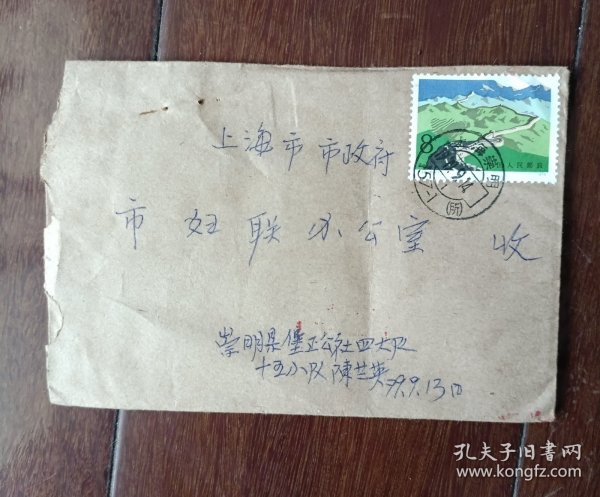 上海市 市政府
市妇联办公室 收
崇明县堡镇公社四大队
十五小队 陳兰英 79.9.13日
8
中国人民邮政
崇明
9.14
孔夫子旧书网
www.kongfz.com